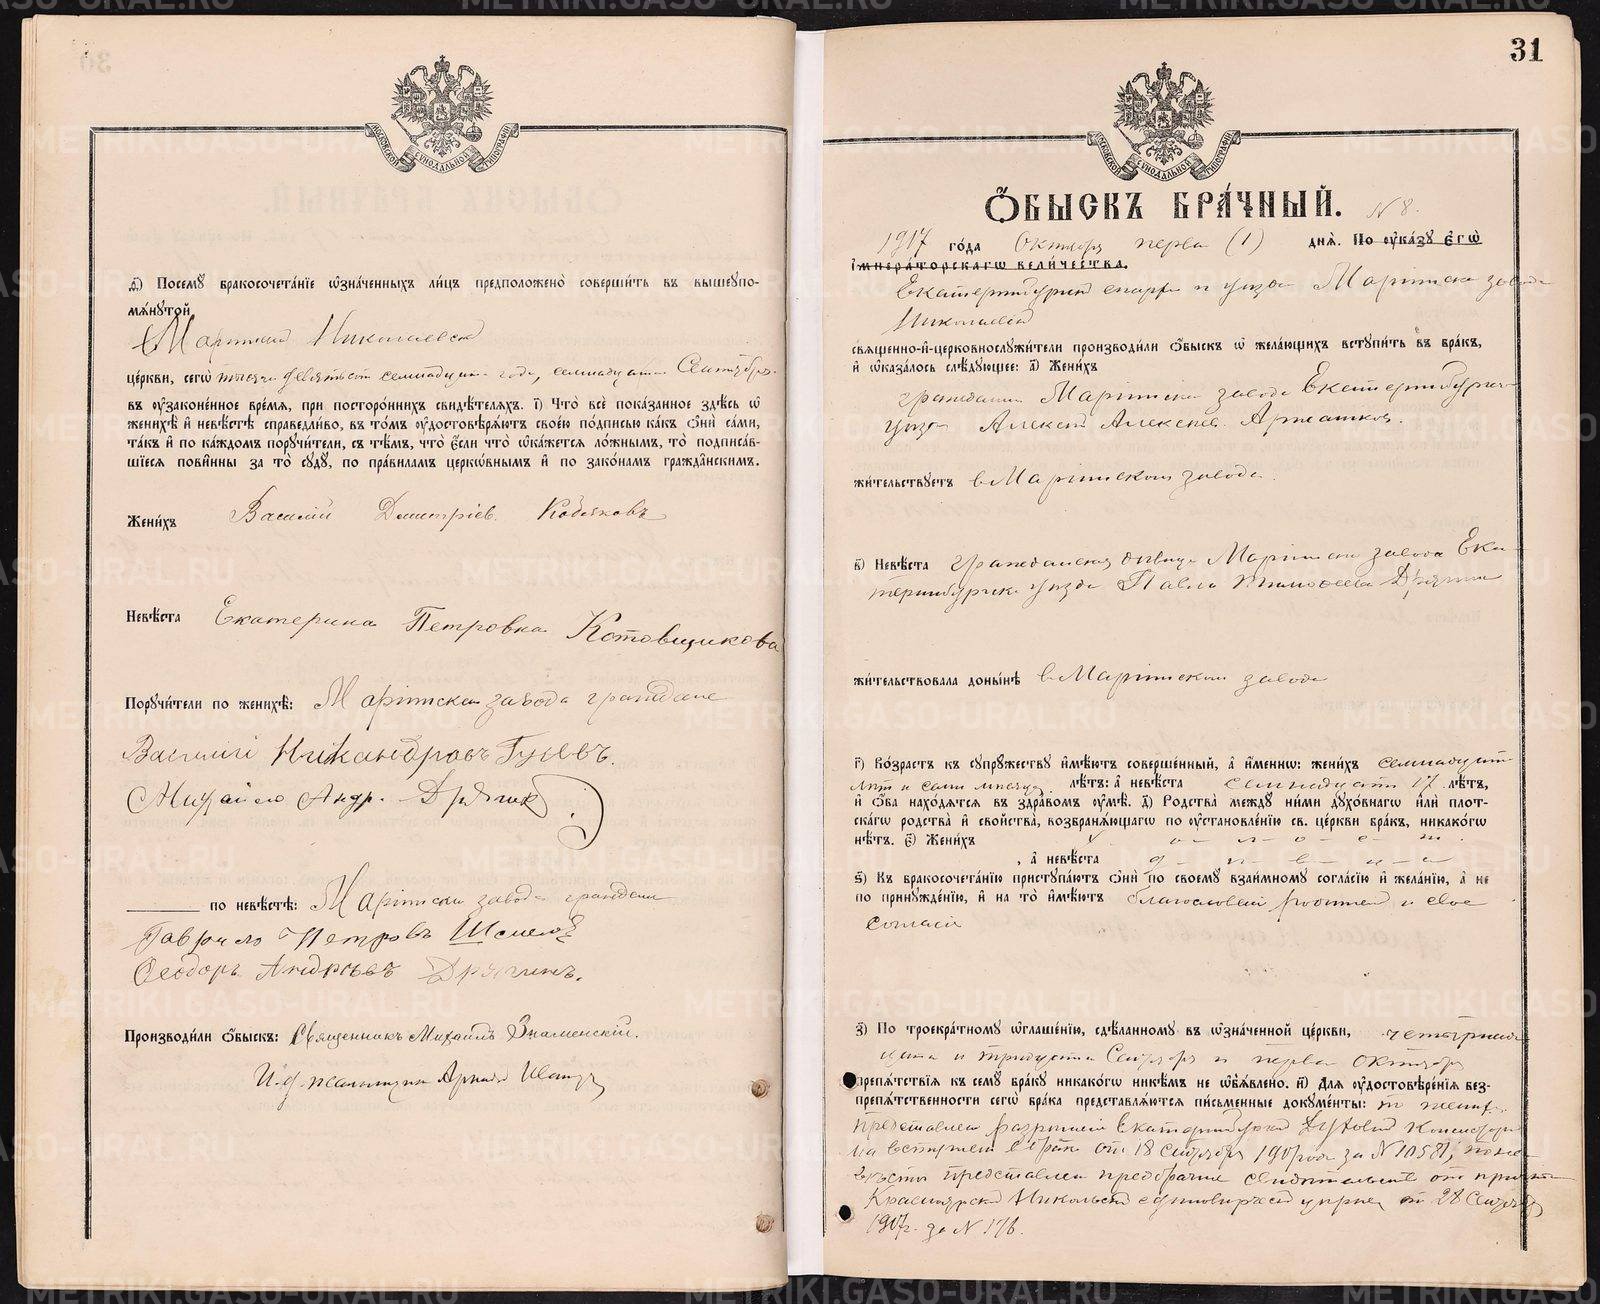 МОСКОВСКОЙ СѴНОДАЛЬНОЙ ТИПОГРАФІИ
д҃) Посемꙋ бракосочета́нїе ѡ҆зна́ченныхъ ли́цъ предположено̀ соверши́ть въ вышеупо-
мѧ́нутой
Марiинской Николаевской
це́ркви, сегѡ̀ тысяча девятьсот семнадцат. года, семнадцатого Сентября
въ ᲂу҆зако́ненное вре́мѧ, при посторо́ннихъ свидѣ́телѧхъ. і҃) Что̀ всѐ пока́занное здѣ́сь ѡ҆
женихѣ̀ и҆ невѣ́стѣ справедли́во, въ то́мъ ᲂу҆достовѣрѧ́ютъ своє́ю по́дписью ка́къ ѻ҆нѝ са́ми,
та́къ и҆ по ка́ждомъ порꙋчи́тели, съ тѣ́мъ, что̀ є҆́сли что̀ ѡ҆ка́жетсѧ ло́жнымъ, то̀ подписа́в-
шїесѧ пови́нны за то̀ сꙋдꙋ̀, по пра́виламъ церко́внымъ и҆ по зако́намъ гражда́нскимъ.
Жени́хъ Василiй Дмитрiев. Кобяковъ
Невѣ́ста Екатерина Петровна Котовщикова
Порꙋчи́тели по женихѣ̀: Марiинскаго завода граждане
Василiй Никандровъ Гусевъ.
Михаило Андр. Дрягин
по невѣ́стѣ: Марiинскаго завода граждане
Гаврило Петровъ
Ѳеодоръ Андреевъ Дрягинъ.
Производи́ли ѻ҆́быскъ: Священникъ Михаилъ Знаменскiй.
И. д. псаломщика Аркадiй
31
МОСКОВСКОЙ СѴНОДАЛЬНОЙ ТИПОГРАФІИ
Ѻ҆́БЫСКЪ БРА́ЧНЫЙ. N 8.
1917 го́да Октября перва (1) днѧ̀. По ᲂу҆ка́зꙋ є҆гѡ̀
і҆мпера́торскагѡ вели́чества.
Екатеринбург. епарх. и уезда Марiинска завода
Николаевск
свѧще́нно-и҆-церковнослꙋжи́тели производи́ли ѻ҆́быскъ ѡ҆ жела́ющихъ встꙋпи́ть въ бра́къ,
и҆ ѡ҆каза́лось слѣ́дꙋющее: а҃) Жени́хъ
гражданин Марiинска завода Екатеринбургск
уезда Алексей Алексеев
жи́тельствꙋетъ в Марiинском заводе.
в҃) Невѣ́ста гражданская девица Марiинска завода Ека-
теринбургск. уезда Павла Тимофеева Дрягина
жи́тельствовала доны́нѣ в Марiинском заводе
г҃) Во́зрастъ къ сꙋпрꙋ́жествꙋ и҆мѣ́ютъ соверше́нный, а҆ и҆́менно: жени́хъ семнадцат
лет и семи месяцев лѣ́тъ: а҆ невѣ́ста семнадцат 17 лѣ́тъ,
и҆ ѻ҆́ба нахо́дѧтсѧ въ здра́вомъ ᲂу҆мѣ̀. д҃) Родства̀ междꙋ̀ ни́ми дꙋхо́внагѡ и҆лѝ плот-
ска́гѡ родства̀ и҆ свойства̀, возбранѧ́ющагѡ по ᲂу҆становле́нїю св. це́ркви бра́къ, никако́гѡ
нѣ́тъ. є҃) Жени́хъ х - о - л - о - с - т.
, а҆ невѣ́ста д - е - в - и - ц - а
ѕ҃) Къ бракосочета́нїю пристꙋпа́ютъ ѻ҆нѝ по своемꙋ̀ взаи́мномꙋ согла́сїю и҆ жела́нїю, а҆ не
по принꙋжде́нїю, и҆ на то̀ и҆мѣ́ютъ благословен родителей и свое
согласiе
з҃) По троекра́тномꙋ ѡ҆глаше́нїю, сдѣ́ланномꙋ въ ѡ҆зна́ченной це́ркви, четырнад
цата и тридцата Сентября и перва Октября
препѧ́тствїѧ къ семꙋ̀ бра́кꙋ никако́гѡ никѣ́мъ не ѡ҆бъѧ́влено. и҃) Для ᲂу҆достовѣре́нїѧ без-
препѧ́тственности сегѡ̀ бра́ка представлѧ́ютсѧ пи́сьменные докꙋме́нты: от жених.
представлен разрешенiе Екатеринбургской Духовной Консисторiи
на вступлен в брак от 18 Сентября 1917 года за N 10581; по не-
весты представлен предбрачное свидетельство от причта
Красноярской Никольской единоверческ церкви от 28 Сентября
1917 г. за N 176.